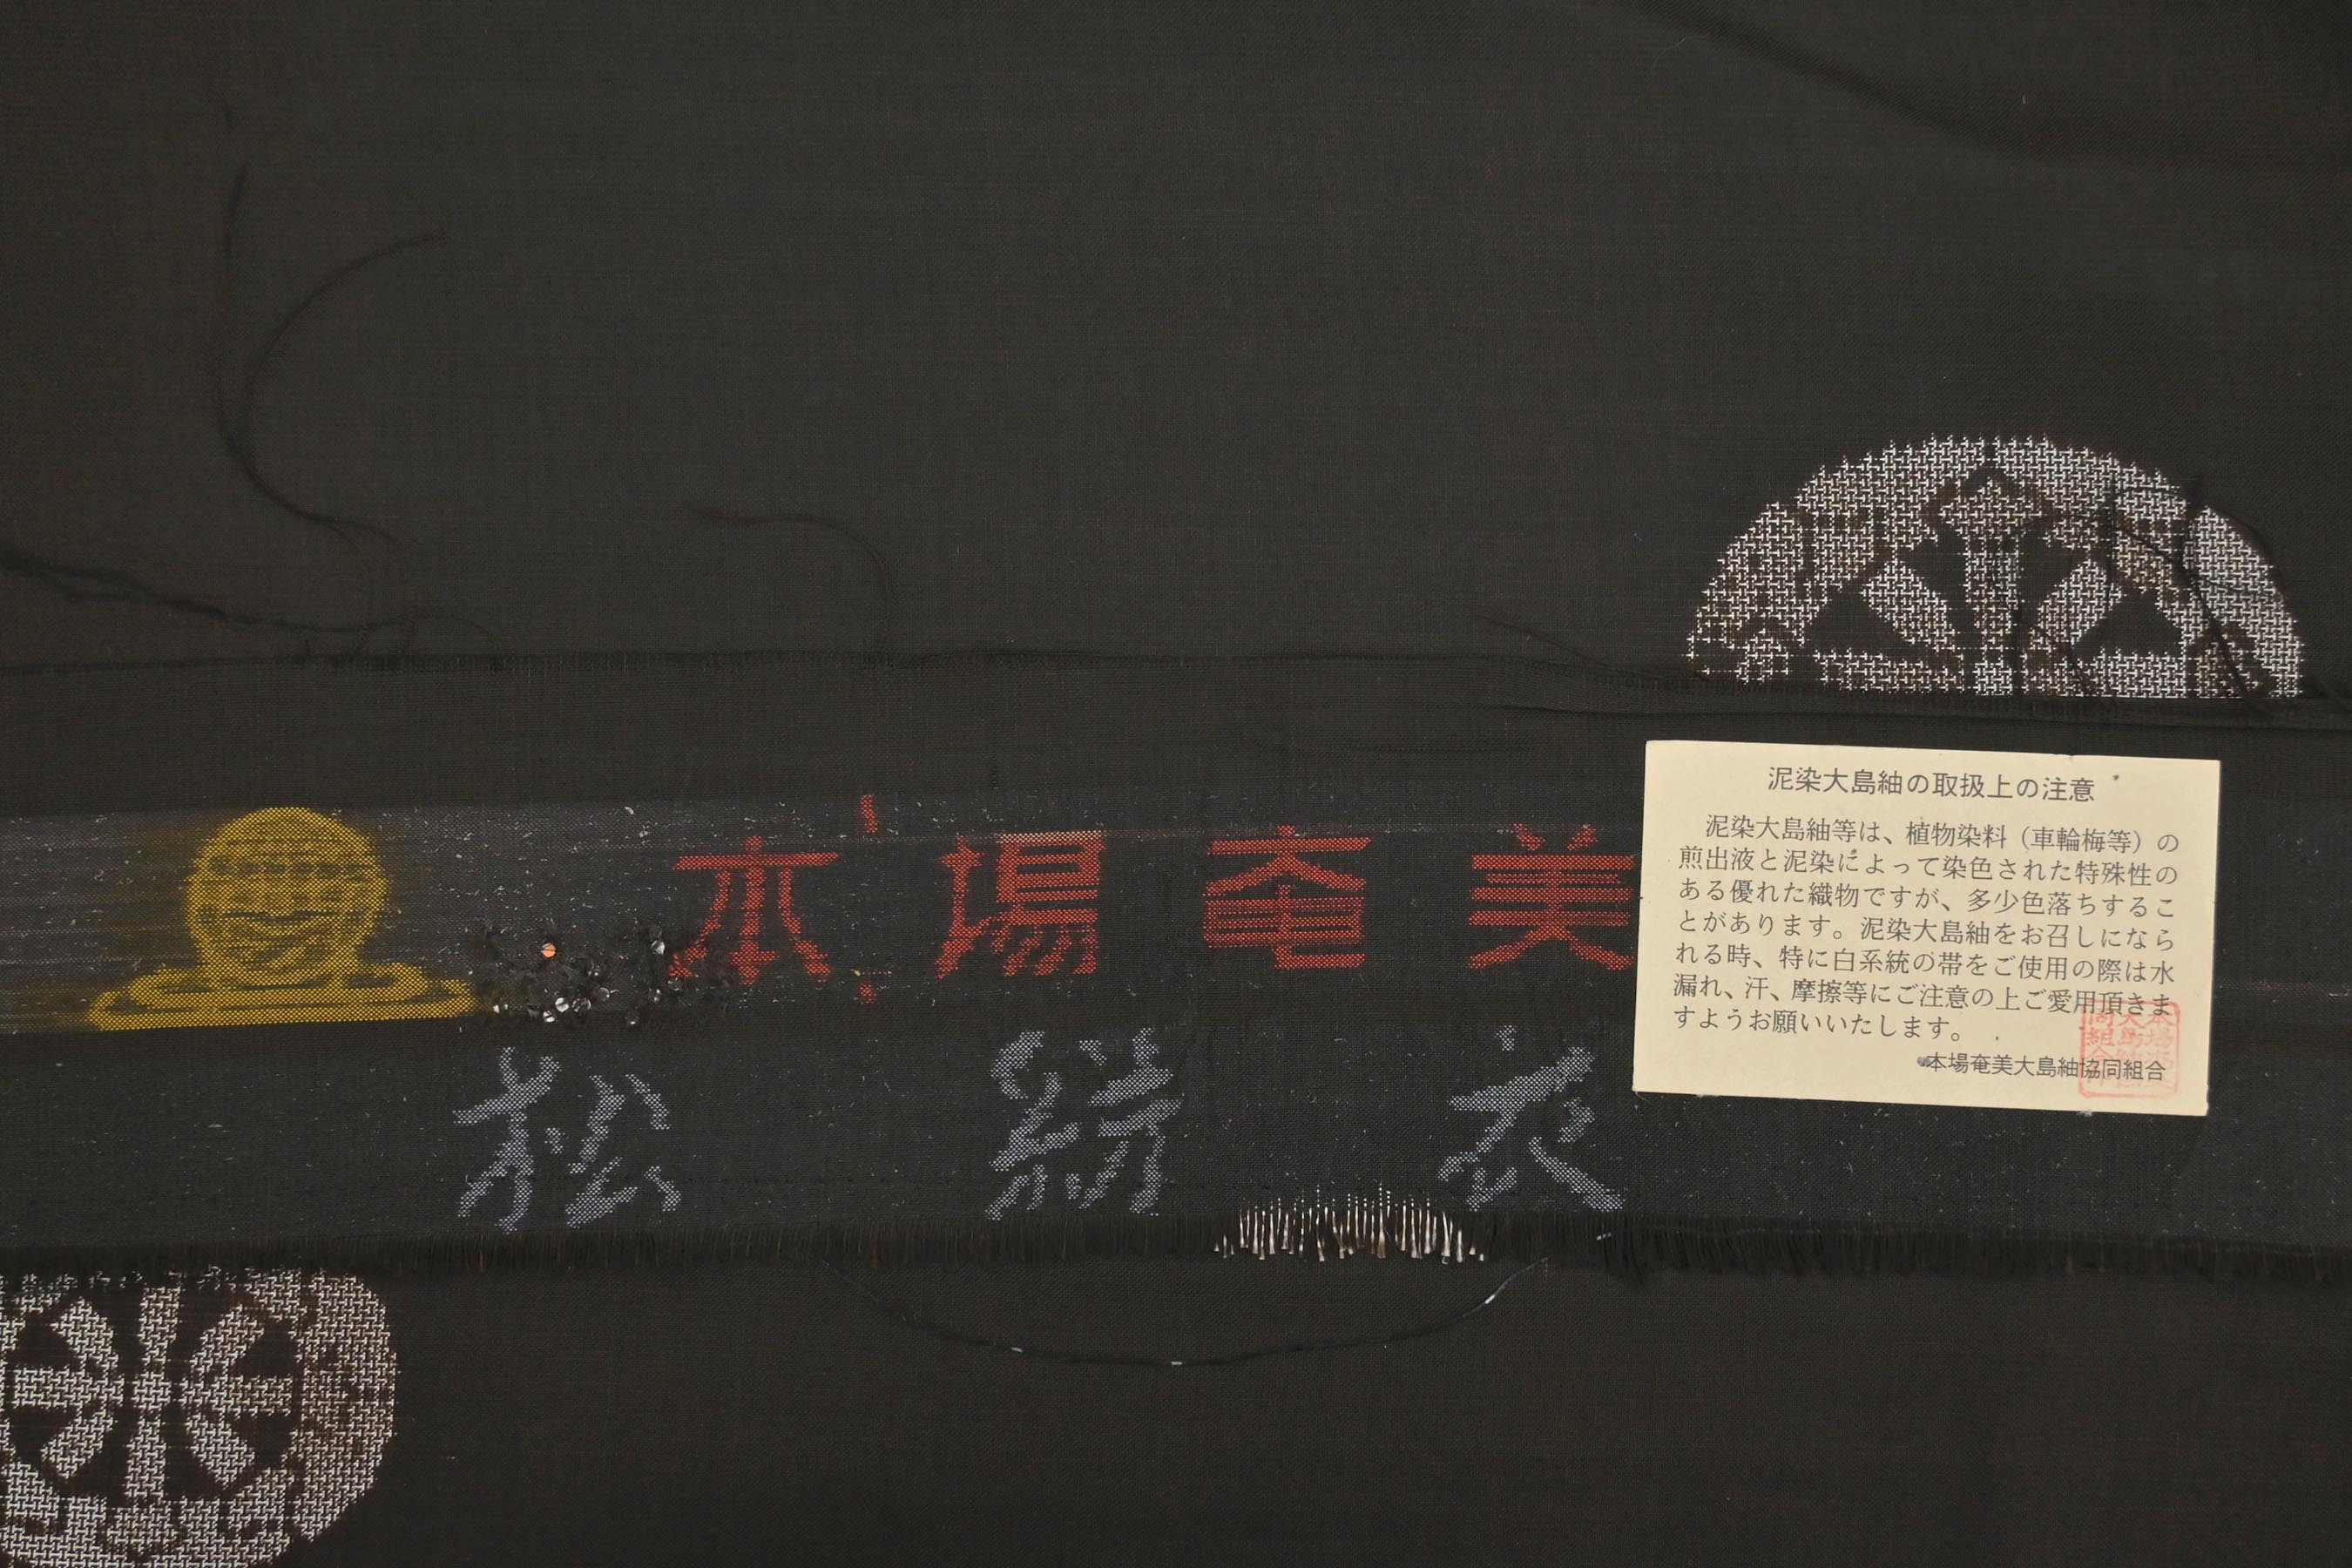 本場奄美
松絣衣
泥染大島紬の取扱上の注意
泥染大島紬等は、植物染料（車輪梅等）の
煎出液と泥染によって染色された特殊性の
ある優れた織物ですが、多少色落ちするこ
とがあります。泥染大島紬をお召しになら
れる時、特に白系統の帯をご使用の際は水
漏れ、汗、摩擦等にご注意の上ご愛用頂きま
すようお願いいたします。
本場奄美大島紬協同組合